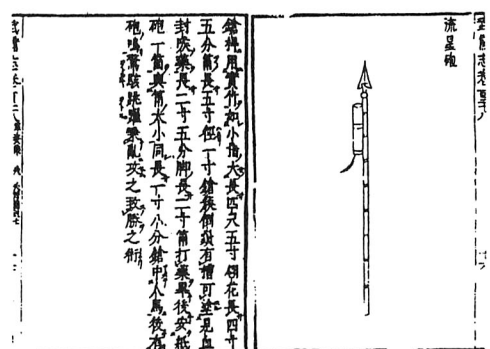 流星砲
鎗桿用實竹如小指大長四尺五寸翎花長四寸
五分筒長五寸徑一寸鎗鏃倒鬚有槽可塗見血
封喉藥長二寸五分脚長二寸筒打藥畢後安紙
砲一箇與筒大小同長一寸八分鎗中人馬後有
砲鳴驚駭跳躍衆亂攻之致勝之術